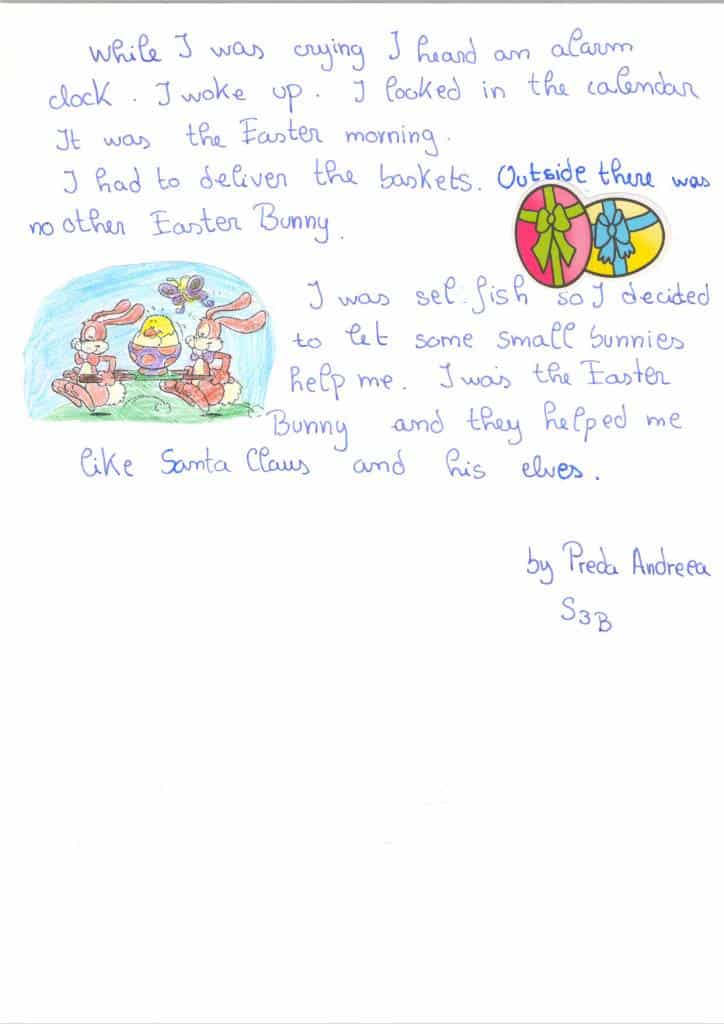 While I was crying I heard an alarm
clock. I woke up. I looked in the calendar
It was the Easter morning.
I had to deliver the baskets. Outside there was
no other Easter Bunny.
I was sel.fish so I decided
to let some small bunnies
help me. I was the Easter
Bunny and they helped me
like Santa Claus and his elves.
by Preda Andreea
S3B